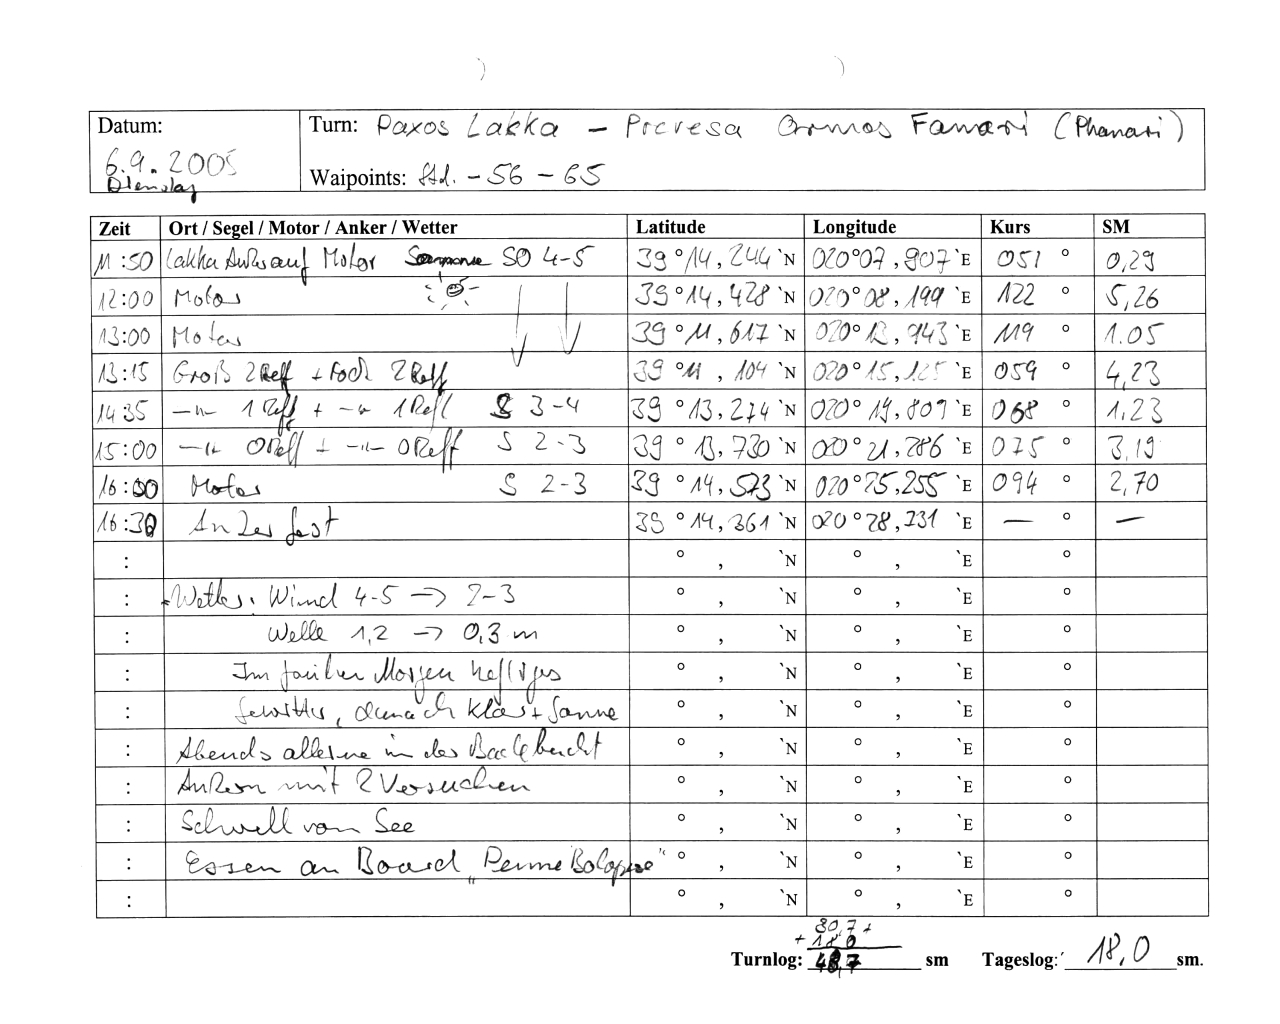 Datum: Turn: Paxos Lakka – Prevesa Ormos Fanari (Phanari)
6.9.2005
Dienstag Waipoints: Std. - 56 - 65
Zeit Ort / Segel / Motor / Anker / Wetter Latitude Longitude Kurs SM
11:50 Lakka Anker auf Motor SO 4-5 39°14,244 `N 020°07,907 `E 051 ° 0,29
12:00 Motor 39°14,428 `N 020°08,199 `E 122 ° 5,26
13:00 Motor 39°11,617 `N 020°12,943 `E 119 ° 1.05
13:15 Groß 2 Reff + Fock 2 Reff 39°11,104 `N 020°15,125 `E 059 ° 4,23
14:35 –"– 1 Reff + –"– 1 Reff S 3-4 39°13,274 `N 020°19,809 `E 068 ° 1,23
15:00 –"– 0 Reff + –"– 0 Reff S 2-3 39°13,730 `N 020°21,286 `E 075 ° 3,19
16:00 Motor S 2-3 39°14,573 `N 020°25,255 `E 094 ° 2,70
16:30 Anker fest 39°14,361 `N 020°28,731 `E — ° —
: ° , `N ° , `E °
: Wetter: Wind 4-5 → 2-3 ° , `N ° , `E °
: Welle 1,2 → 0,3 m ° , `N ° , `E °
: Im frühen Morgen heftiges ° , `N ° , `E °
: Gewitter, danach klar + Sonne ° , `N ° , `E °
: Abends alleine in der Badebucht ° , `N ° , `E °
: Ankern mit 2 Versuchen ° , `N ° , `E °
: Schwell von See ° , `N ° , `E °
: Essen an Board „Penne Bolognese“ ° , `N ° , `E °
: ° , `N ° , `E °
30,7 +
+ 18,0
Turnlog: 48,7 sm Tageslog: 18,0 sm.